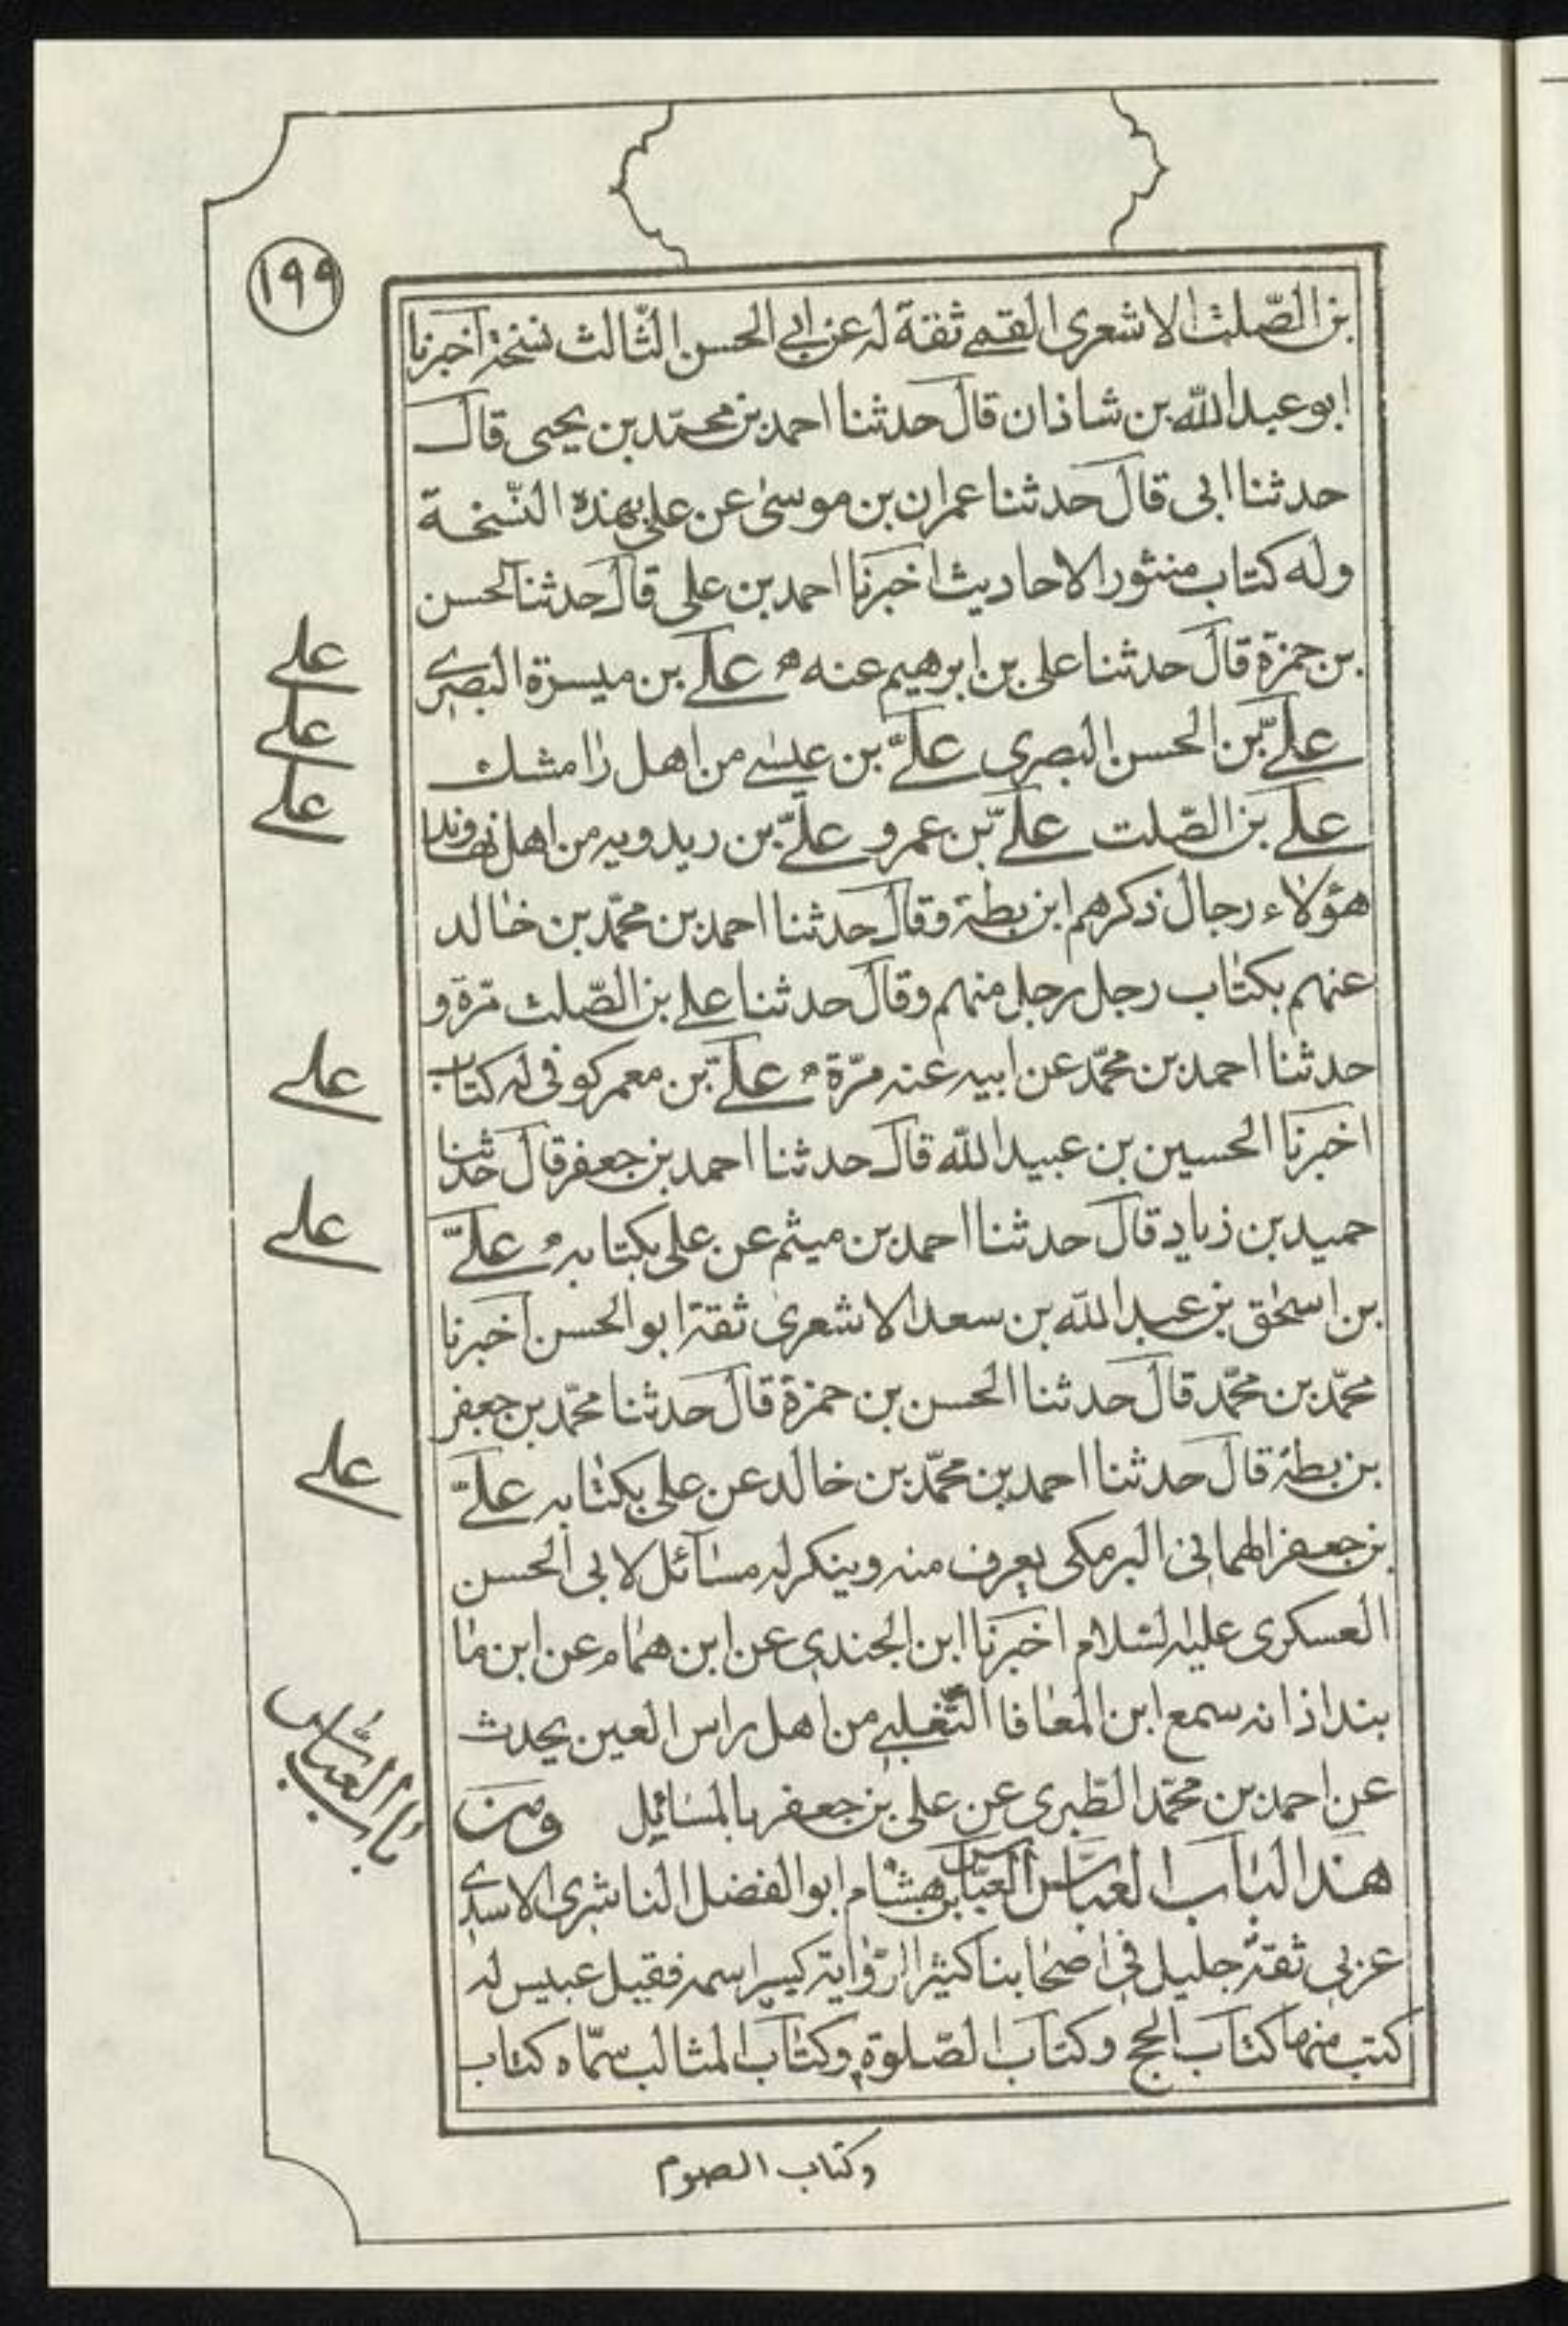 ١٩٩
بن الصّلت الاشعرى القمى ثقة له عن ابى الحسن الثّالث نسخة اخبرنا
ابو عبد الله بن شاذان قال حدثنا احمد بن محمّد بن يحيى قال
حدثنا ابى قال حدثنا عمران بن موسى عن على بهذه النّسخة
وله كتاب منثور الاحاديث اخبرنا احمد بن على قال حدثنا الحسن
بن حمزة قال حدثنا على بن ابرهيم عنه ه علے بن ميسرة البصرى
علىّ بن الحسن البصرى علىّ بن عيسى من اهل رامشك
على بن الصّلت علىّ بن عمرو علىّ بن ريدويه من اهل نهاوند
هؤلاء رجال ذكرهم ابن بطة وقال حدثنا احمد بن محمّد بن خالد
عنهم بكتاب رجل رجل منهم وقال حدثنا على بن الصّلت مرّة و
حدثنا احمد بن محمّد عن ابيه عنه مرّة ه علىّ بن معمر كوفى له كتاب
اخبرنا الحسين بن عبيد الله قال حدثنا احمد بن جعفر قال حدثنا
حميد بن زياد قال حدثنا احمد بن ميثم عن على بكتابه ه علىّ
بن اسحق بن عبد الله بن سعد الاشعرى ثقة ابو الحسن اخبرنا
محمّد بن محمّد قال حدثنا الحسن بن حمزة قال حدثنا محمّد بن جعفر
بن بطة قال حدثنا احمد بن محمّد بن خالد عن على بكتابه علىّ
بن جعفر الهمانى البرمكى يعرف منه وينكر له مسآئل لابى الحسن
العسكرى عليه السّلام اخبرنا ابن الجندى عن ابن همام عن ابن ما
بنداذ انه سمع ابن المعافا التّغلبى من اهل راس العين يحدث
عن احمد بن محمّد الطّبرى عن على بن جعفر بالمسائل ومن
هذا الباب العبّاس العبّاس بن هشام ابو الفضل الناشرى الاسدى
عربى ثقة جليل فى اصحابنا كثير الرّواية كسر اسمه فقيل عبيس له
كتب منها كتاب الحج وكتاب الصّلوة وكتاب المثالب سمّاه كتاب
وكتاب الصوم
على
على
على
على
على
على
باب العبّاس